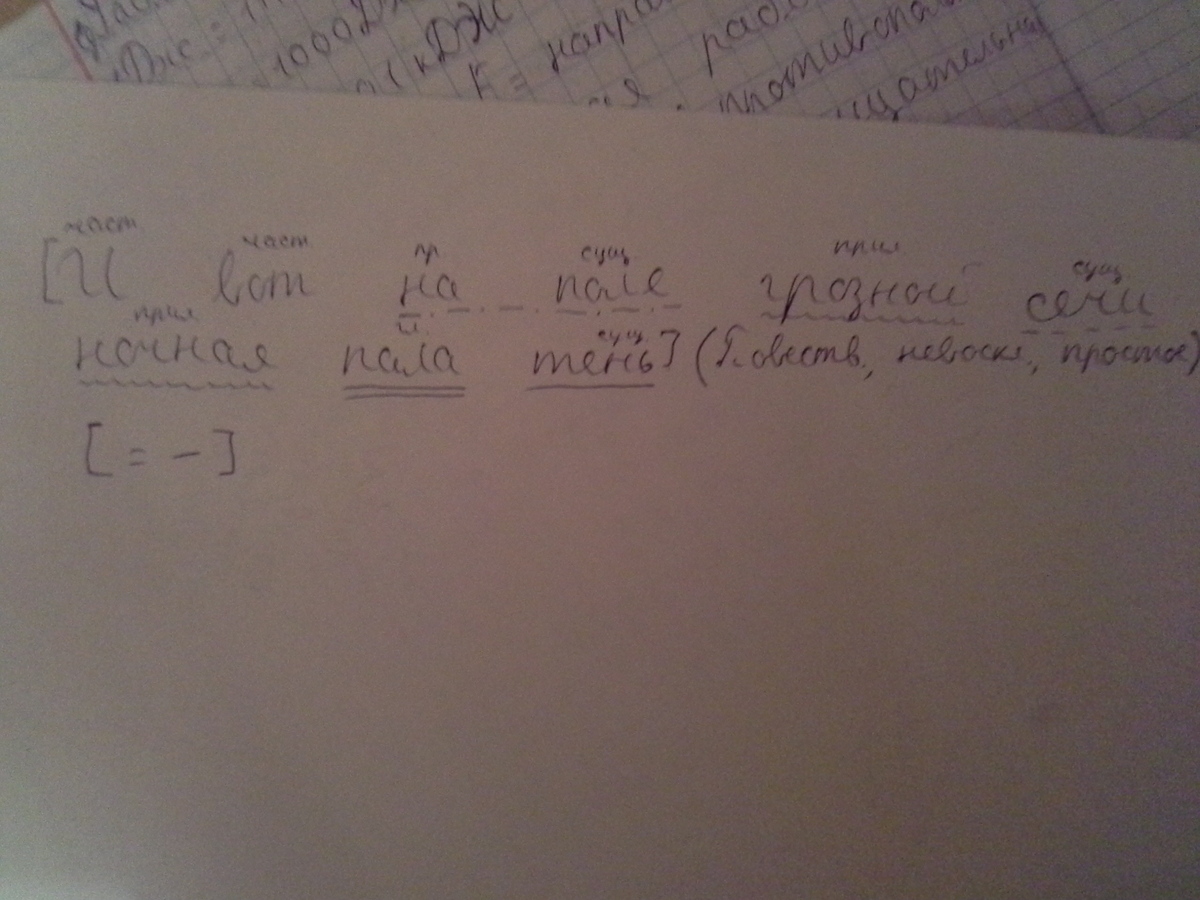 Дж =
1000Дж
1кДж
К = напра
рабо
противопол
щательны
част част пр сущ прил сущ
[И вот на поле грозной сечи
прил сущ
ночная пала тень] (Повеств, невоскл, простое)
[= -]